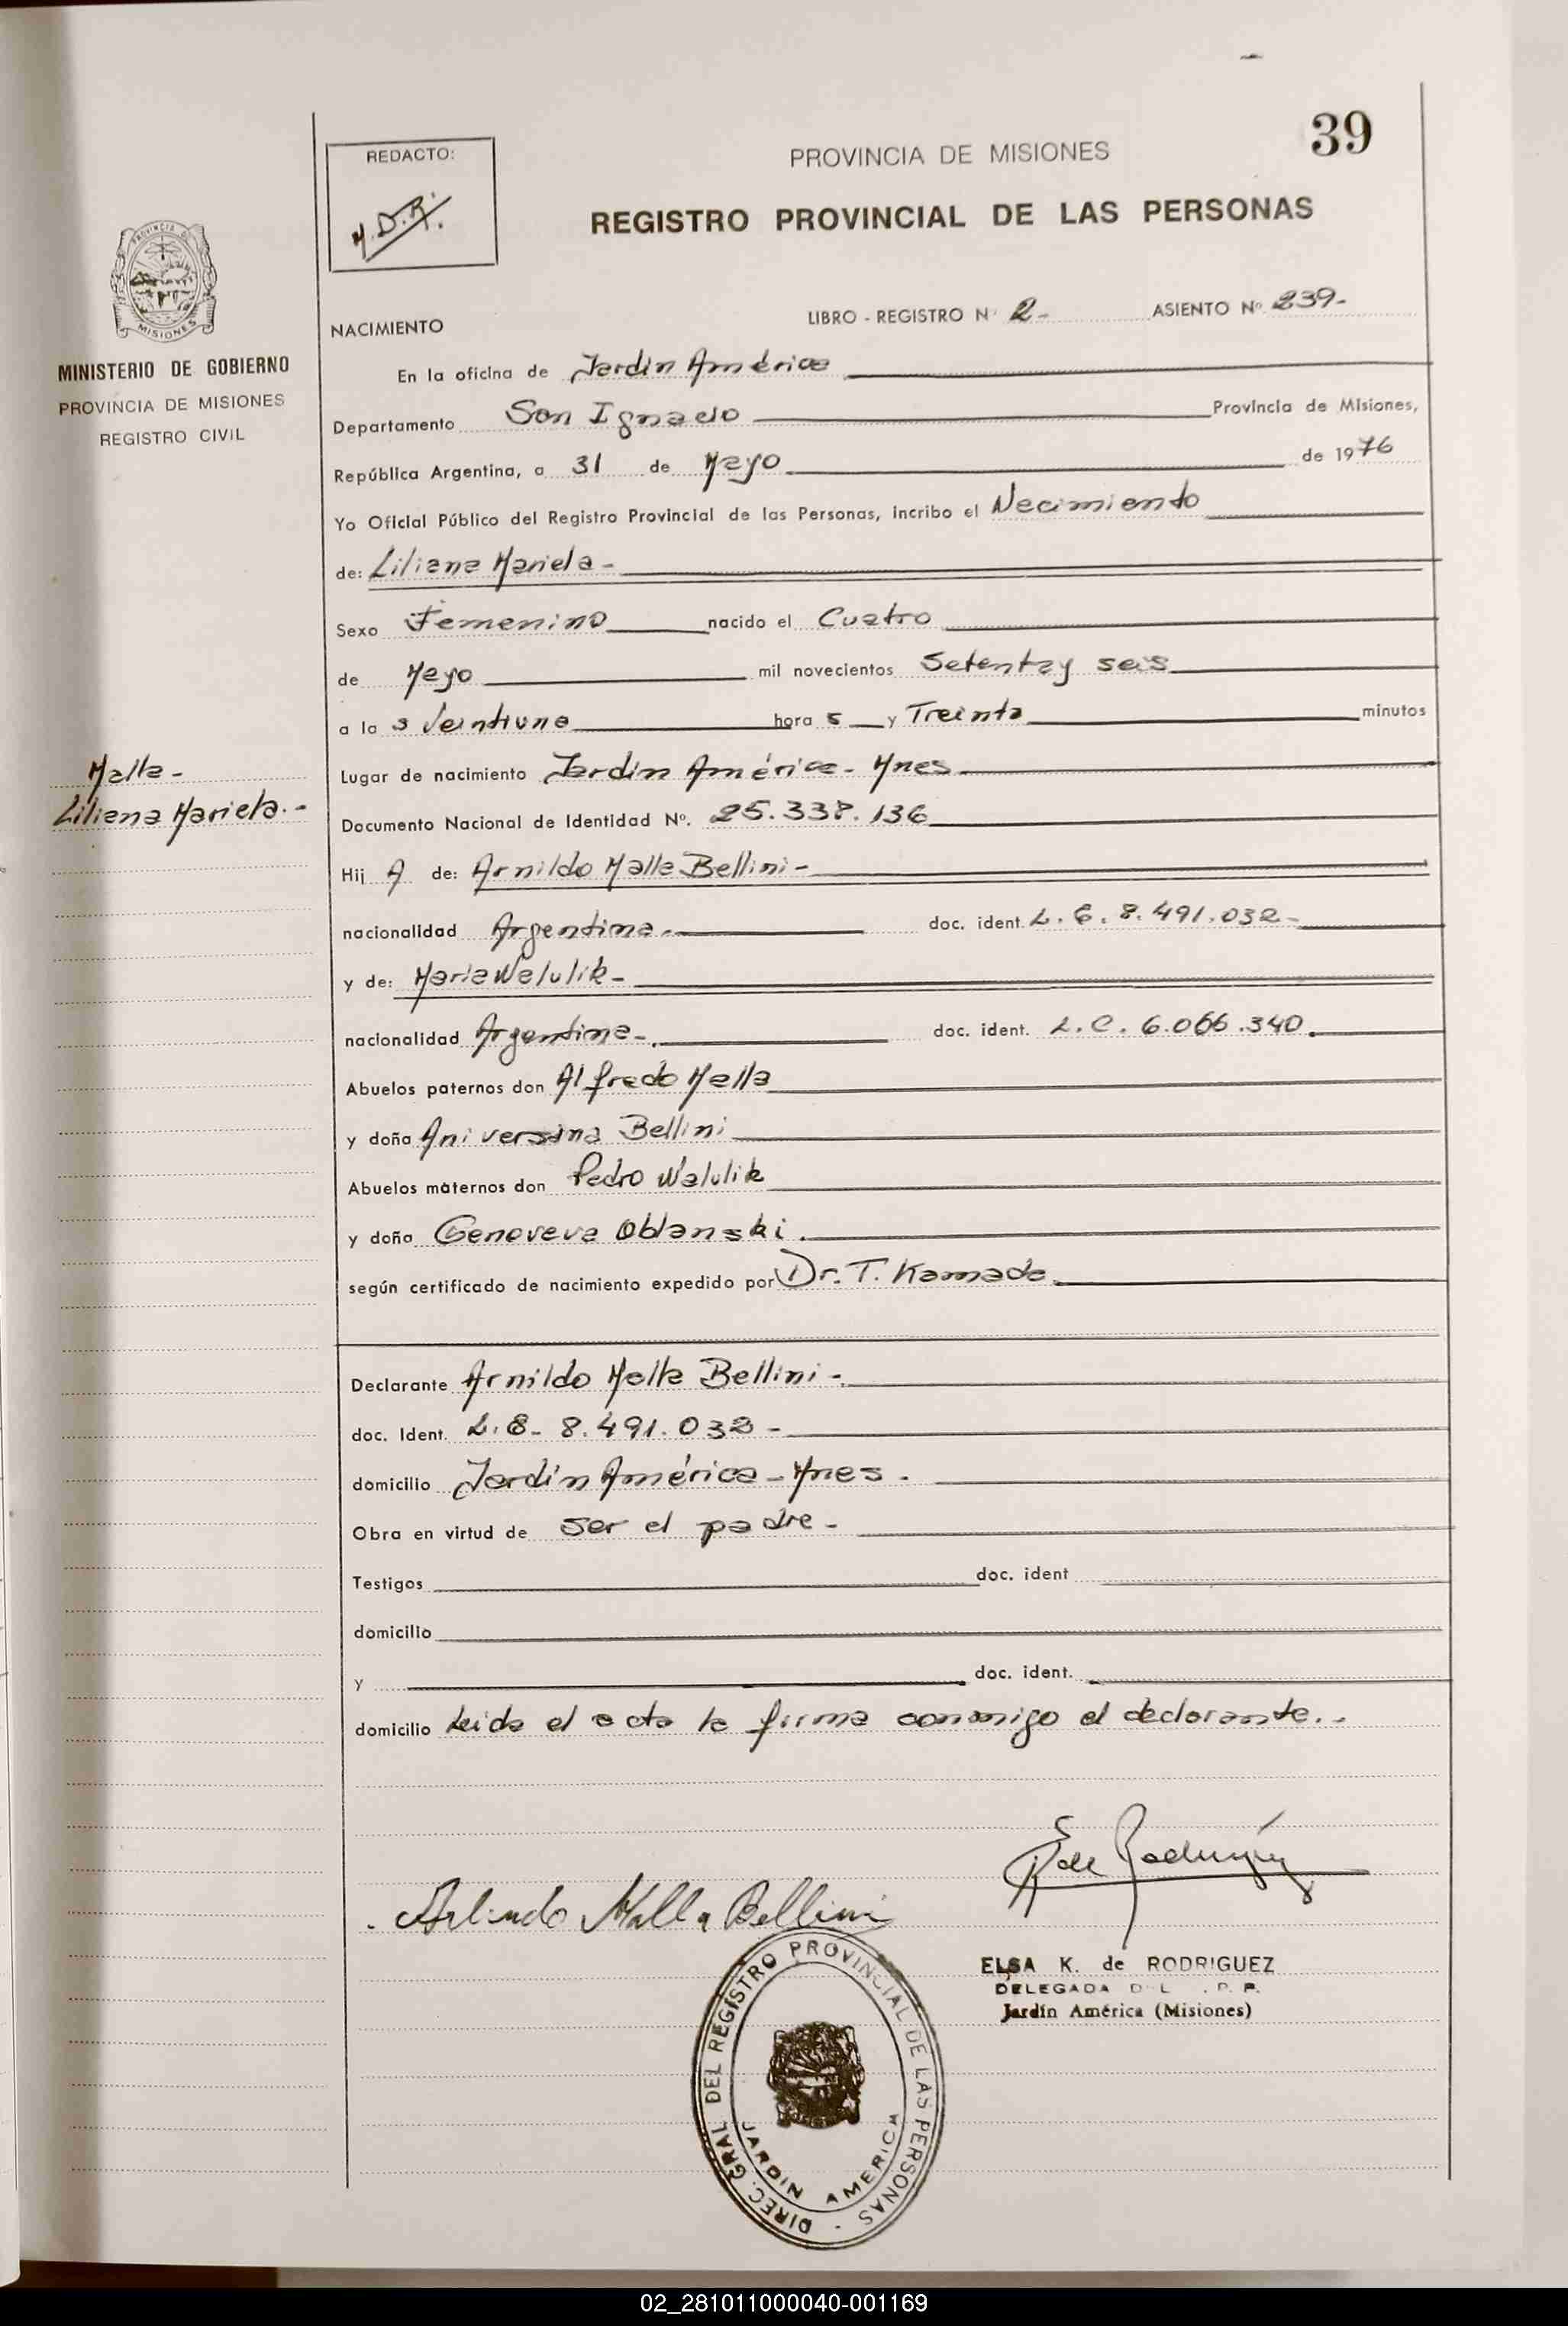 39
REDACTO:
M.D.R.
PROVINCIA DE MISIONES
REGISTRO PROVINCIAL DE LAS PERSONAS
PROVINCIA D
MISIONES
MINISTERIO DE GOBIERNO
PROVINCIA DE MISIONES
REGISTRO CIVIL
NACIMIENTO LIBRO - REGISTRO N° 2- ASIENTO N° 239-
En la oficina de Jardin América
Departamento San Ignacio Provincia de Misiones,
República Argentina, a 31 de Mayo de 1976
Yo Oficial Público del Registro Provincial de las Personas, incribo el Nacimiento
de: Liliana Mariela-
Sexo Femenino nacido el Cuatro
de Mayo mil novecientos Setentay seis
a la s Veintiuna hora s y Treinta minutos
Malla-
Liliana Mariela.-
Lugar de nacimiento Jardin América- Mnes.
Documento Nacional de Identidad N°. 25.338.136
Hij A de: Arnildo Malla Bellini-
nacionalidad Argentina.- doc. ident. L.E. 8.491.032-
y de: Maria Walulik-
nacionalidad Argentina-. doc. ident. L.C. 6.066.340.
Abuelos paternos don Alfredo Malla
y doña Aniversina Bellini
Abuelos maternos don Pedro Walulik
y doña Genoveva Oblanski.
según certificado de nacimiento expedido por Dr. T. Kamada.
Declarante Arnildo Malla Bellini-.
doc. Ident. L.E- 8.491.032-
domicilio Jardín América-Mnes.
Obra en virtud de ser el padre-
Testigos doc. ident
domicilio
y doc. ident.
domicilio Leida el acta la firma conmigo el declarante..
E K de Rodriguez
Arlindo Malla Bellini
ELSA K. de RODRIGUEZ
DELEGADA D L . P. P.
Jardín América (Misiones)
DIREC. GRAL. DEL REGISTRO PROVINCIAL DE LAS PERSONAS -
JARDIN AMERICA
02_281011000040-001169